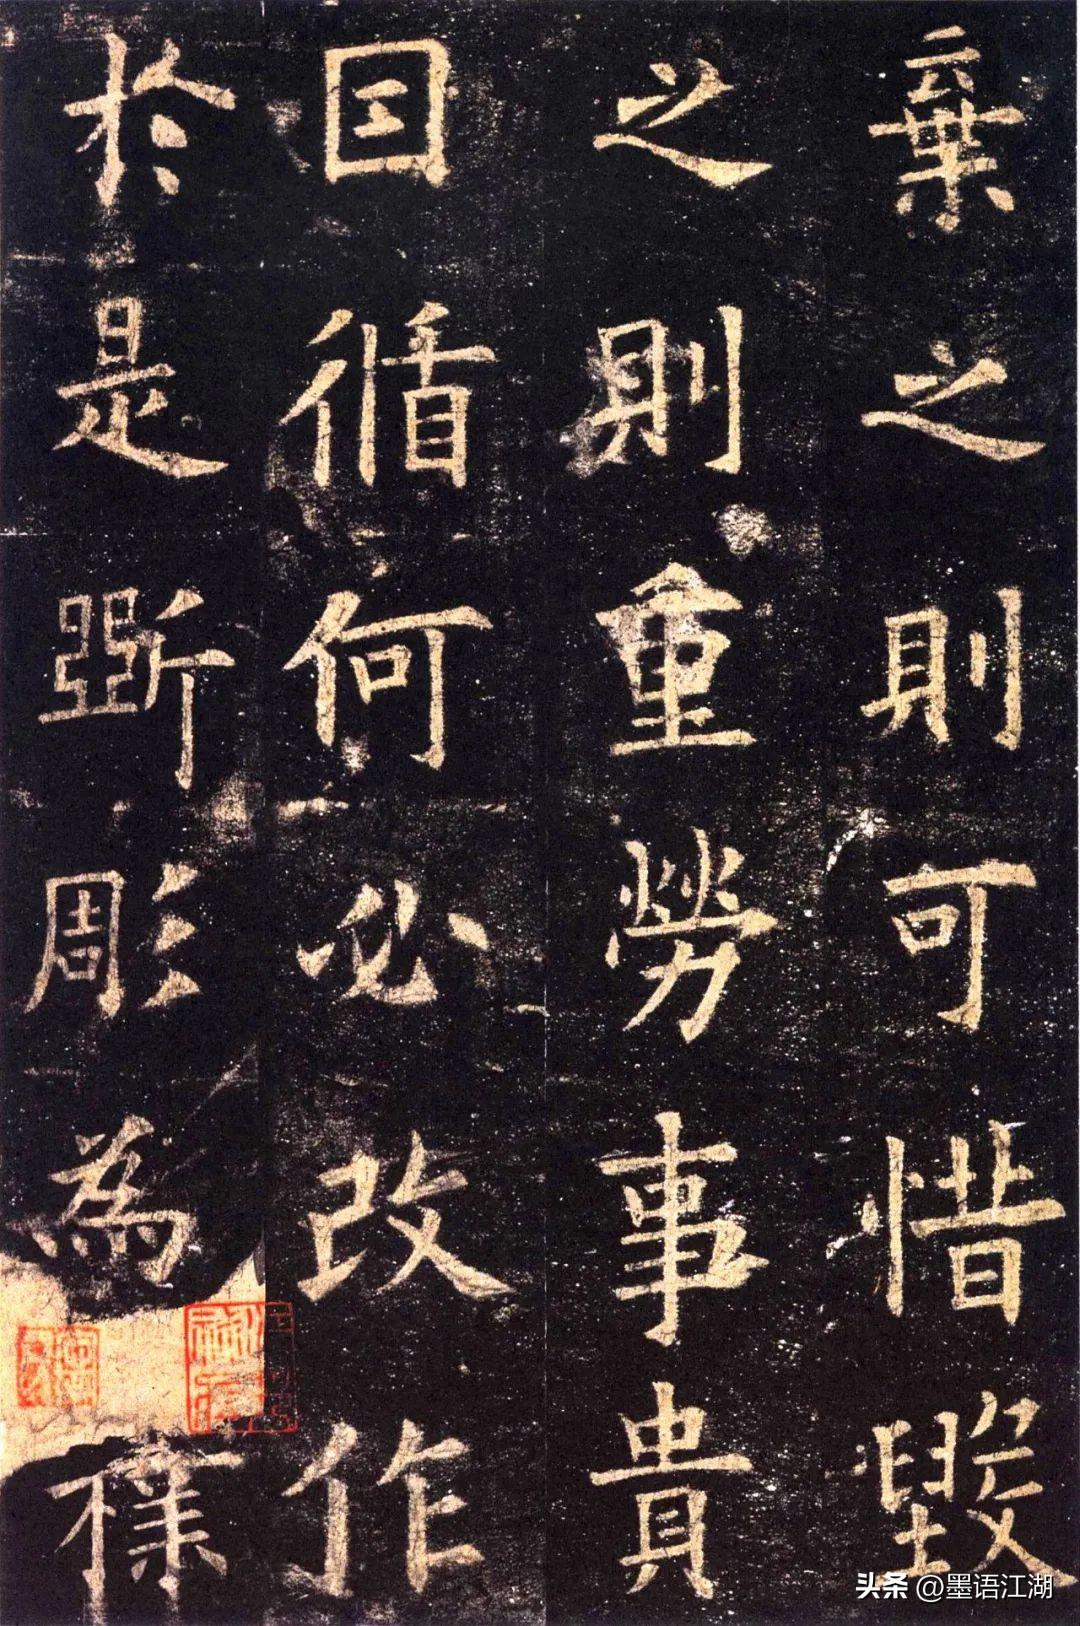 棄之則可惜毀
之則重勞事貴
因循何必改作
於是斵彫為樸
头条 @墨语江湖